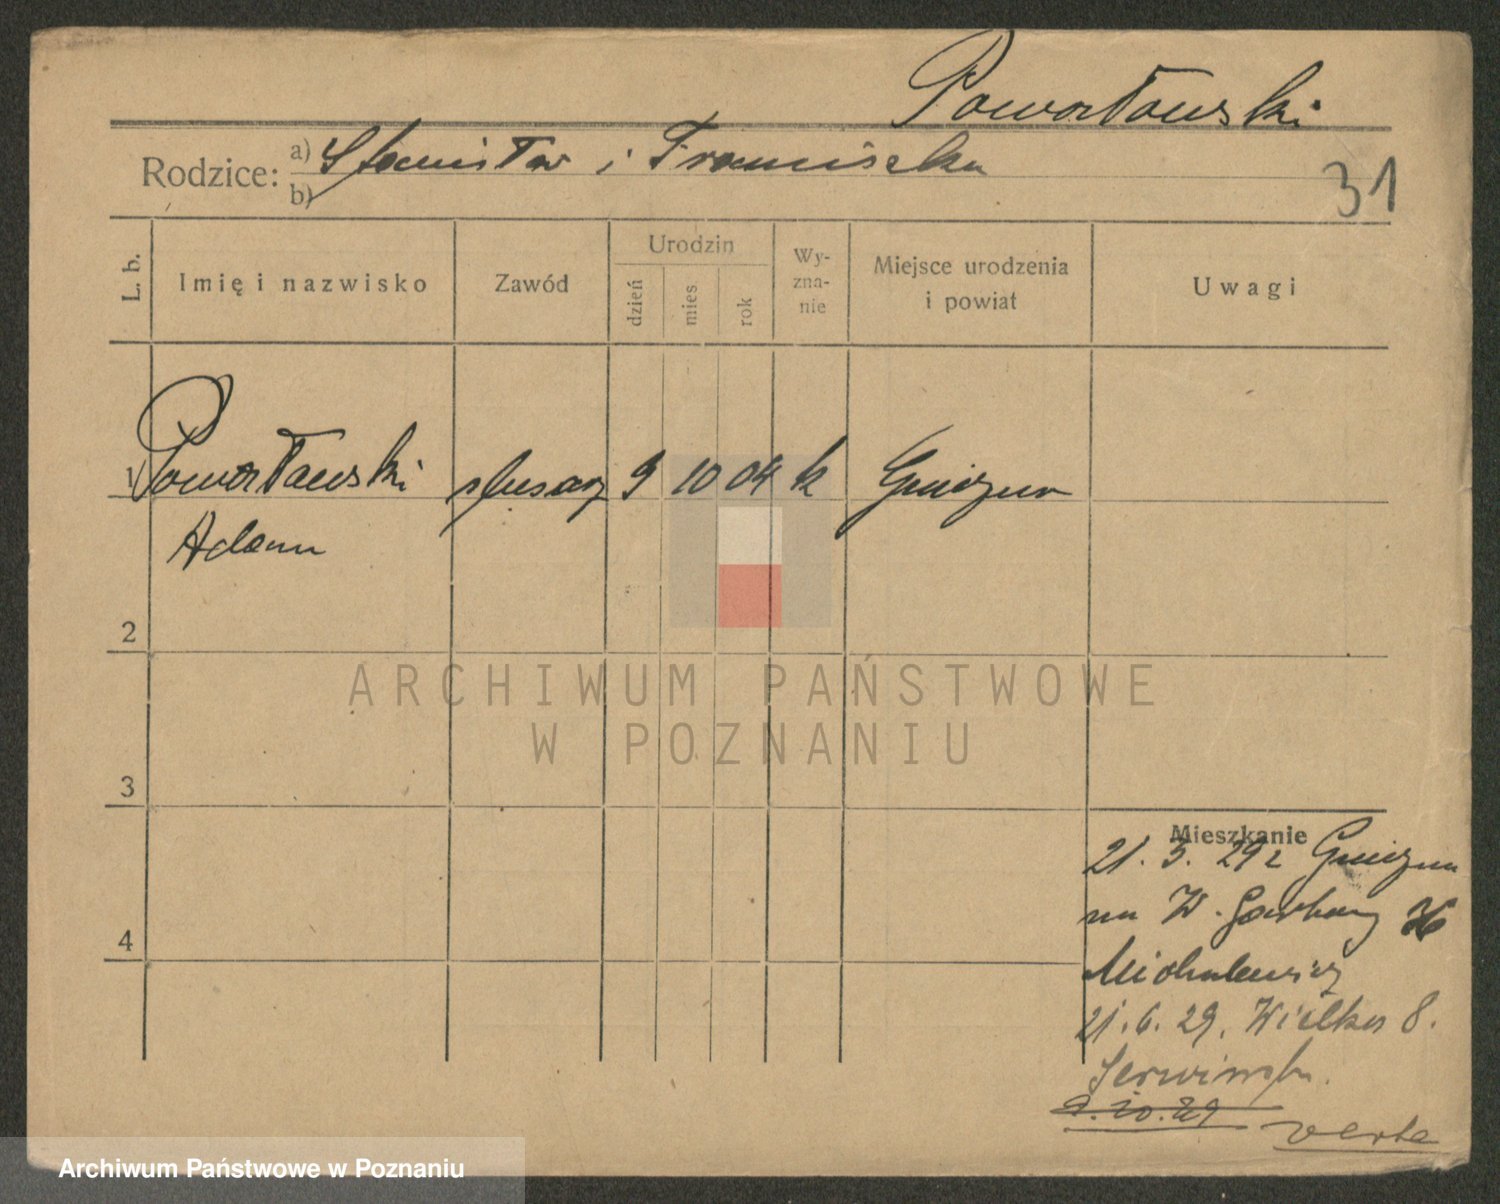 Powałowski
Rodzice: a) Stanisław i Franciszka
b)
31
L. b.
Imię i nazwisko
Zawód
Urodzin
dzień
mies.
rok
Wy-
zna-
nie
Miejsce urodzenia
i powiat
Uwagi
1
ślusarz 9 10 04 k Gniezno
Adam
2
ARCHIWUM PAŃSTWOWE
W POZNANIU
3
Mieszkanie
21. 3. 29 z Gniezna
na W. Garbary 36
4
Michalewicz
21. 6. 29. Wielka 8.
10. 29
verte
Archiwum Państwowe w Poznaniu